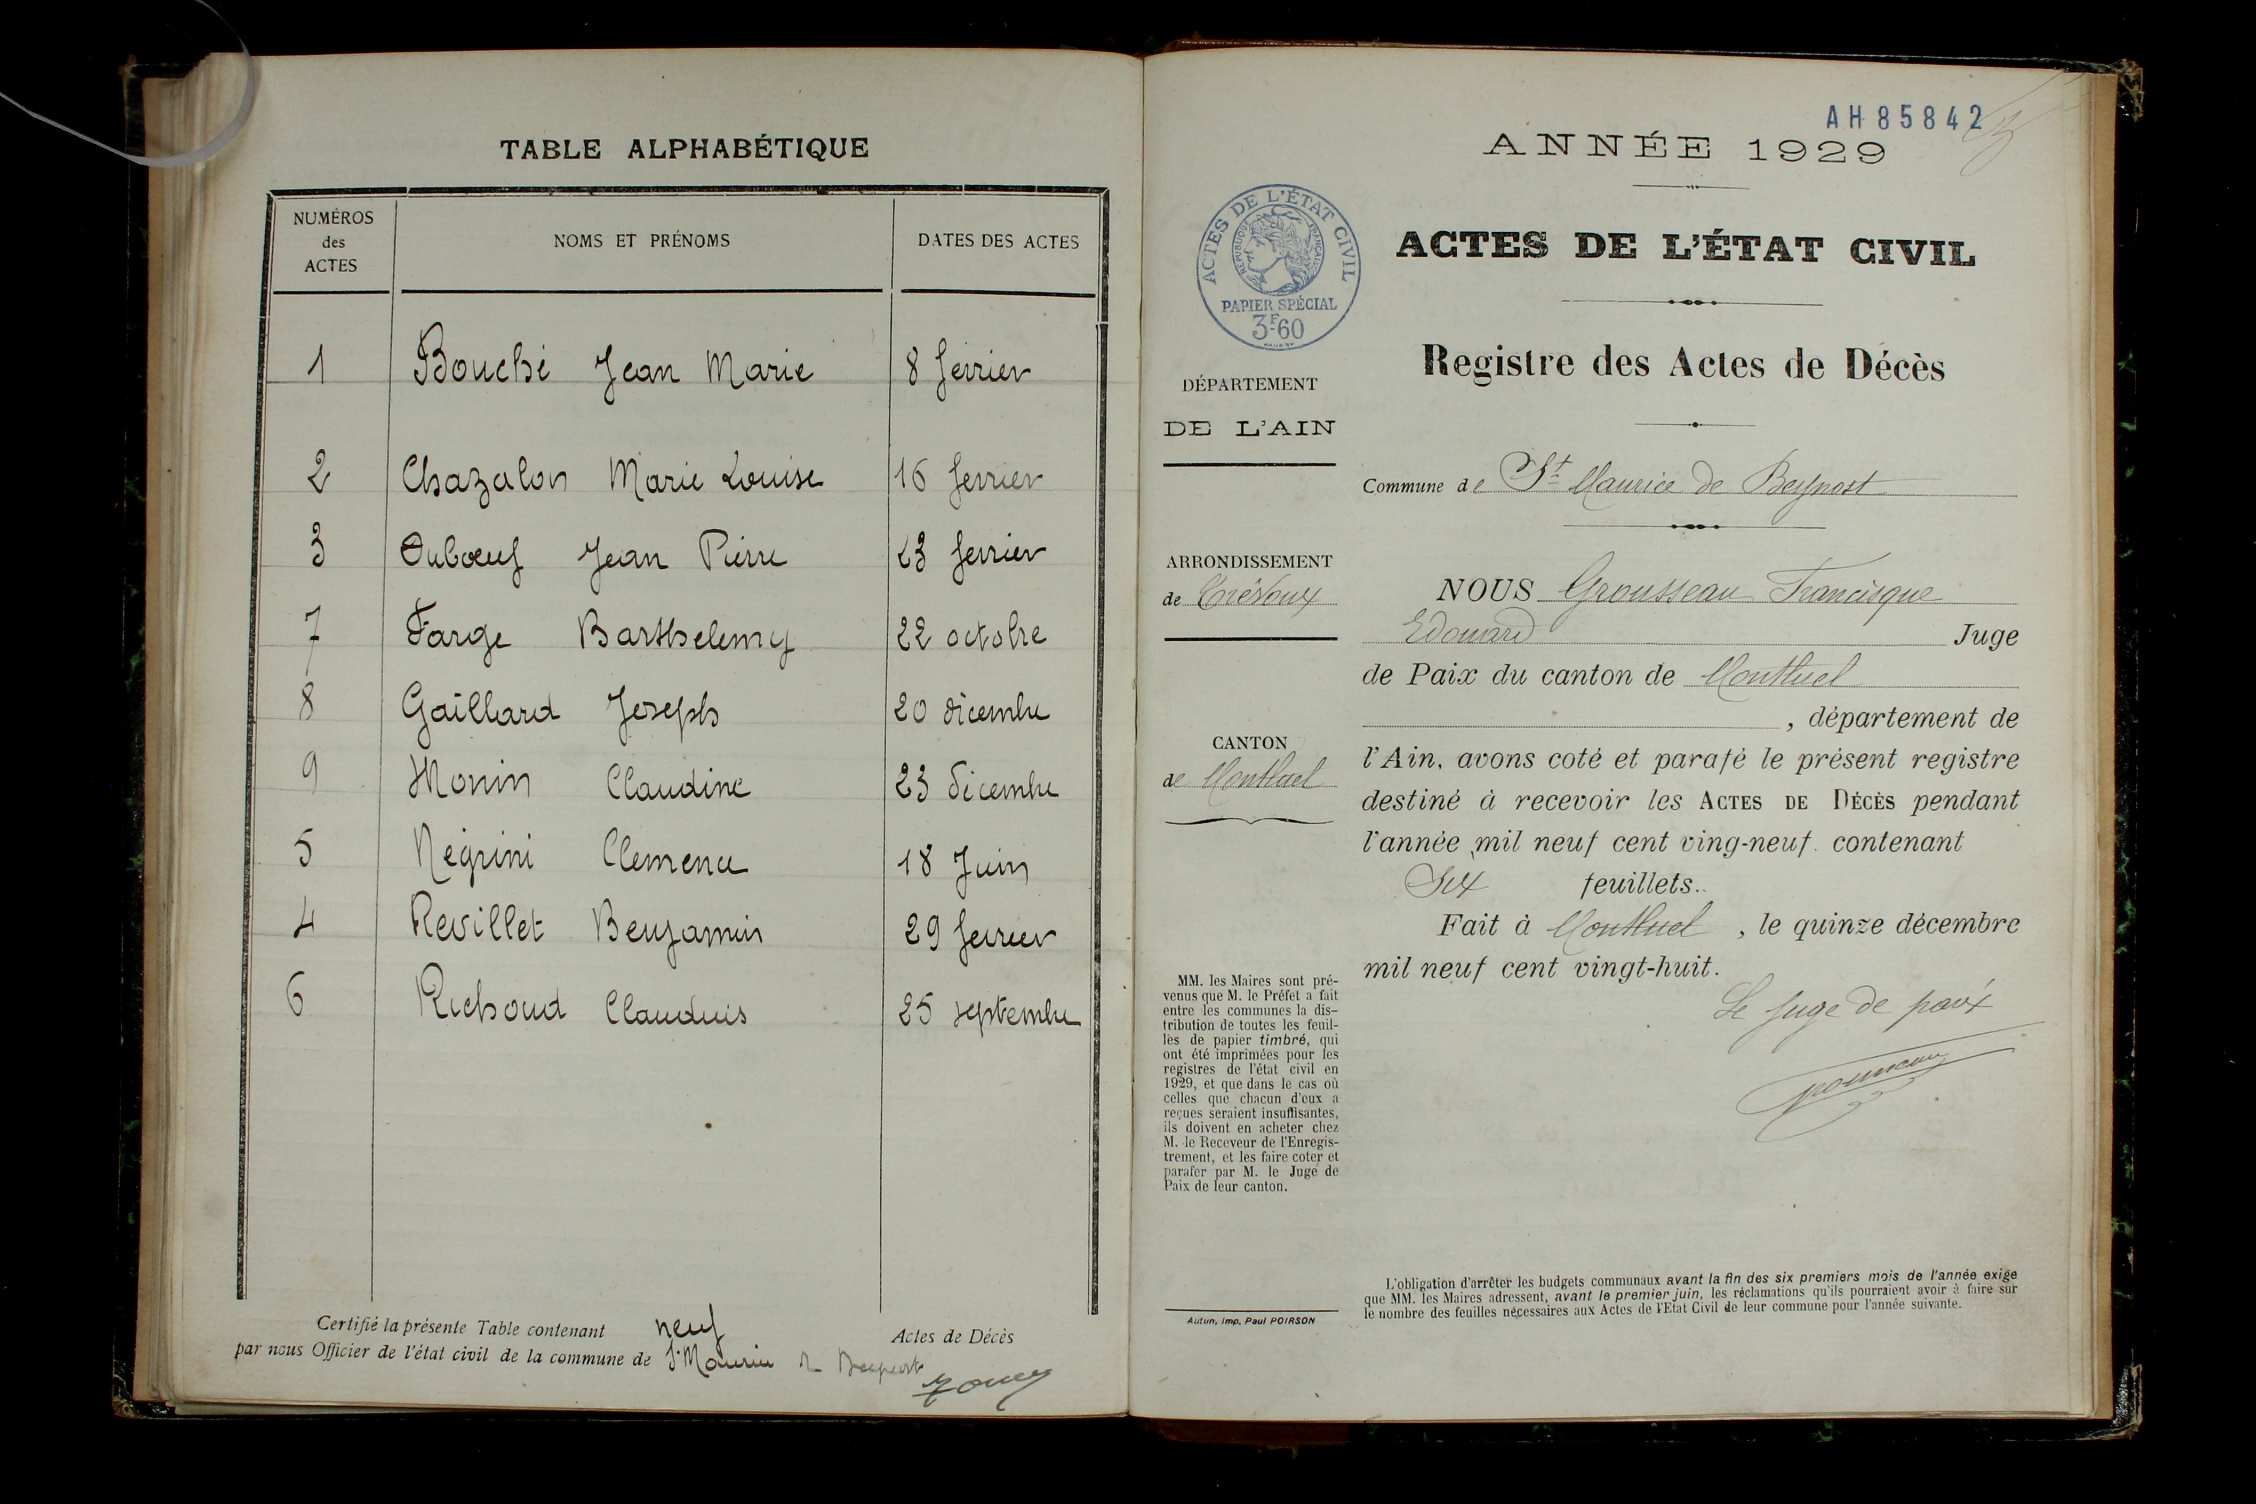 TABLE ALPHABÉTIQUE
NUMÉROS des ACTES
NOMS ET PRÉNOMS
DATES DES ACTES
1 Bouché Jean Marie 8 fevrier
2 Chazalon Marie Louise 16 fevrier
3 Duboeuf Jean Pierre 23 fevrier
7 Farge Barthelemy 22 octobre
8 Gaillard Joseph 20 décembre
9 Monin Claudine 23 décembre
5 Negrini Clemence 18 Juin
4 Revillet Benjamin 29 fevrier
6 Richoud Claudius 25 septembre
Certifié la présente Table contenant neuf Actes de Décès
par nous Officier de l'état civil de la commune de St Maurice de Beynost
AH85842
ANNÉE 1929
ACTES DE L'ÉTAT CIVIL
RÉPUBLIQUE FRANÇAISE
PAPIER SPÉCIAL
3F60
ACTES DE L'ÉTAT CIVIL
Registre des Actes de Décès
DÉPARTEMENT
DE L'AIN
Commune de St Maurice de Beynost
ARRONDISSEMENT
de Trévoux
CANTON
de Montluel
MM. les Maires sont pré-
venus que M. le Préfet a fait
entre les communes la dis-
tribution de toutes les feuil-
les de papier timbré, qui
ont été imprimées pour les
registres de l'état civil en
1929, et que dans le cas où
celles que chacun d'eux a
reçues seraient insuffisantes,
ils doivent en acheter chez
M. le Receveur de l'Enregis-
trement, et les faire coter et
parafer par M. le Juge de
Paix de leur canton.
Autun, Imp. Paul POIRSON
NOUS Grousseau Francisque
Edouard Juge
de Paix du canton de Montluel
, département de
l'Ain, avons coté et parafé le présent registre
destiné à recevoir les ACTES DE DÉCÈS pendant
l'année mil neuf cent ving-neuf. contenant
Six feuillets.
Fait à Montluel, le quinze décembre
mil neuf cent vingt-huit.
Le Juge de paix
L'obligation d'arrêter les budgets communaux avant la fin des six premiers mois de l'année exige
que MM. les Maires adressent, avant le premier juin, les réclamations qu'ils pourraient avoir à faire sur
le nombre des feuilles nécessaires aux Actes de l'Etat Civil de leur commune pour l'année suivante.